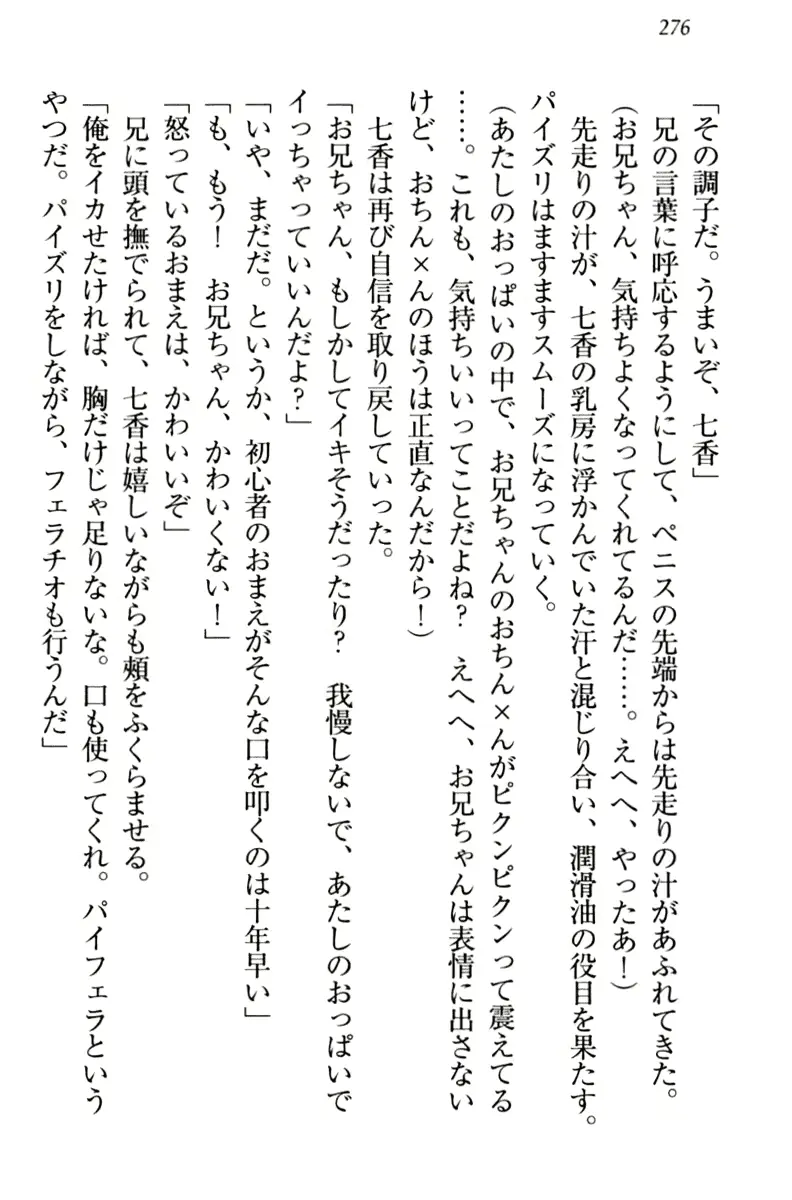 276
「その調子だ。うまいぞ、七香」
　兄の言葉に呼応するようにして、ペニスの先端からは先走りの汁があふれてきた。
（お兄ちゃん、気持ちよくなってくれてるんだ……。えへへ、やったあ！）
　先走りの汁が、七香の乳房に浮かんでいた汗と混じり合い、潤滑油の役目を果たす。
パイズリはますますスムーズになっていく。
（あたしのおっぱいの中で、お兄ちゃんのおちん×んがピクンピクンって震えてる
……。これも、気持ちいいってことだよね？　えへへ、お兄ちゃんは表情に出さない
けど、おちん×んのほうは正直なんだから！）
　七香は再び自信を取り戻していった。
「お兄ちゃん、もしかしてイキそうだったり？　我慢しないで、あたしのおっぱいで
イっちゃっていいんだよ？」
「いや、まだだ。というか、初心者のおまえがそんな口を叩くのは十年早い」
「も、もう！　お兄ちゃん、かわいくない！」
「怒っているおまえは、かわいいぞ」
　兄に頭を撫でられて、七香は嬉しいながらも頬をふくらませる。
「俺をイカせたければ、胸だけじゃ足りないな。口も使ってくれ。パイフェラという
やつだ。パイズリをしながら、フェラチオも行うんだ」